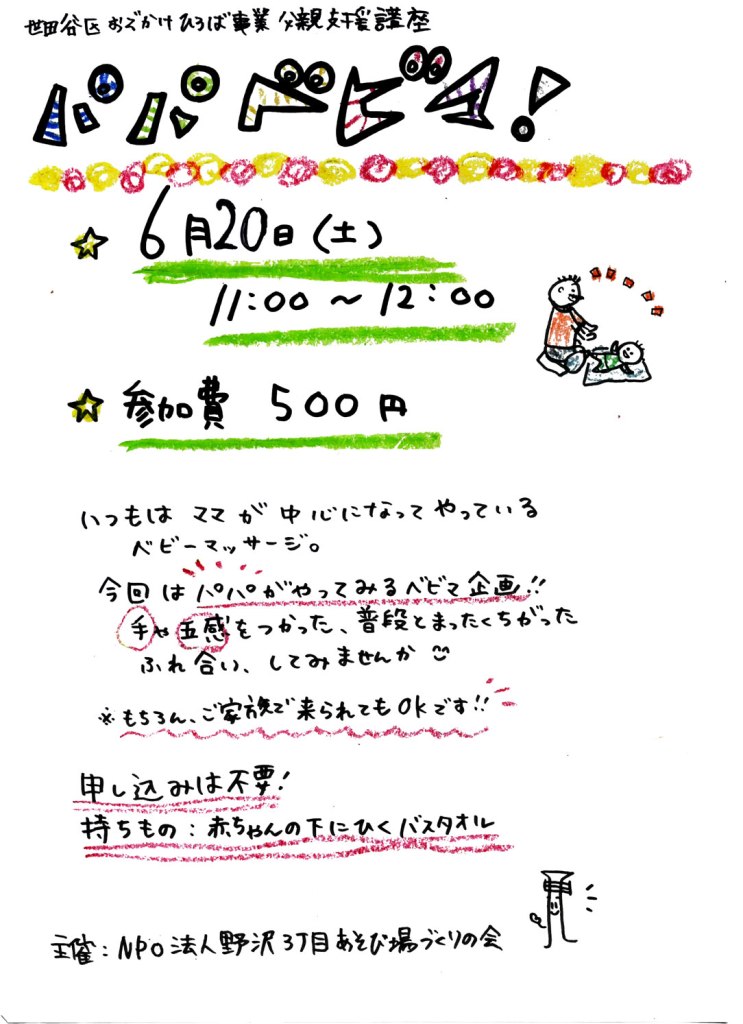 世田谷区 おでかけひろば事業 父親支援講座
パパとビマ!
6月20日(土)
11:00～12:00
参加費 500円
いつもは ママが中心になってやっている
ベビーマッサージ。
今回はパパがやってみるベビマ企画!!
手や五感をつかった、普段とまったくちがった
ふれ合い、してみませんか
※もちろん、ご家族で来られてもOKです!!
申し込みは不要!
持ちもの:赤ちゃんの下にひくバスタオル
主催:NPO法人野沢3丁目あそび場づくりの会